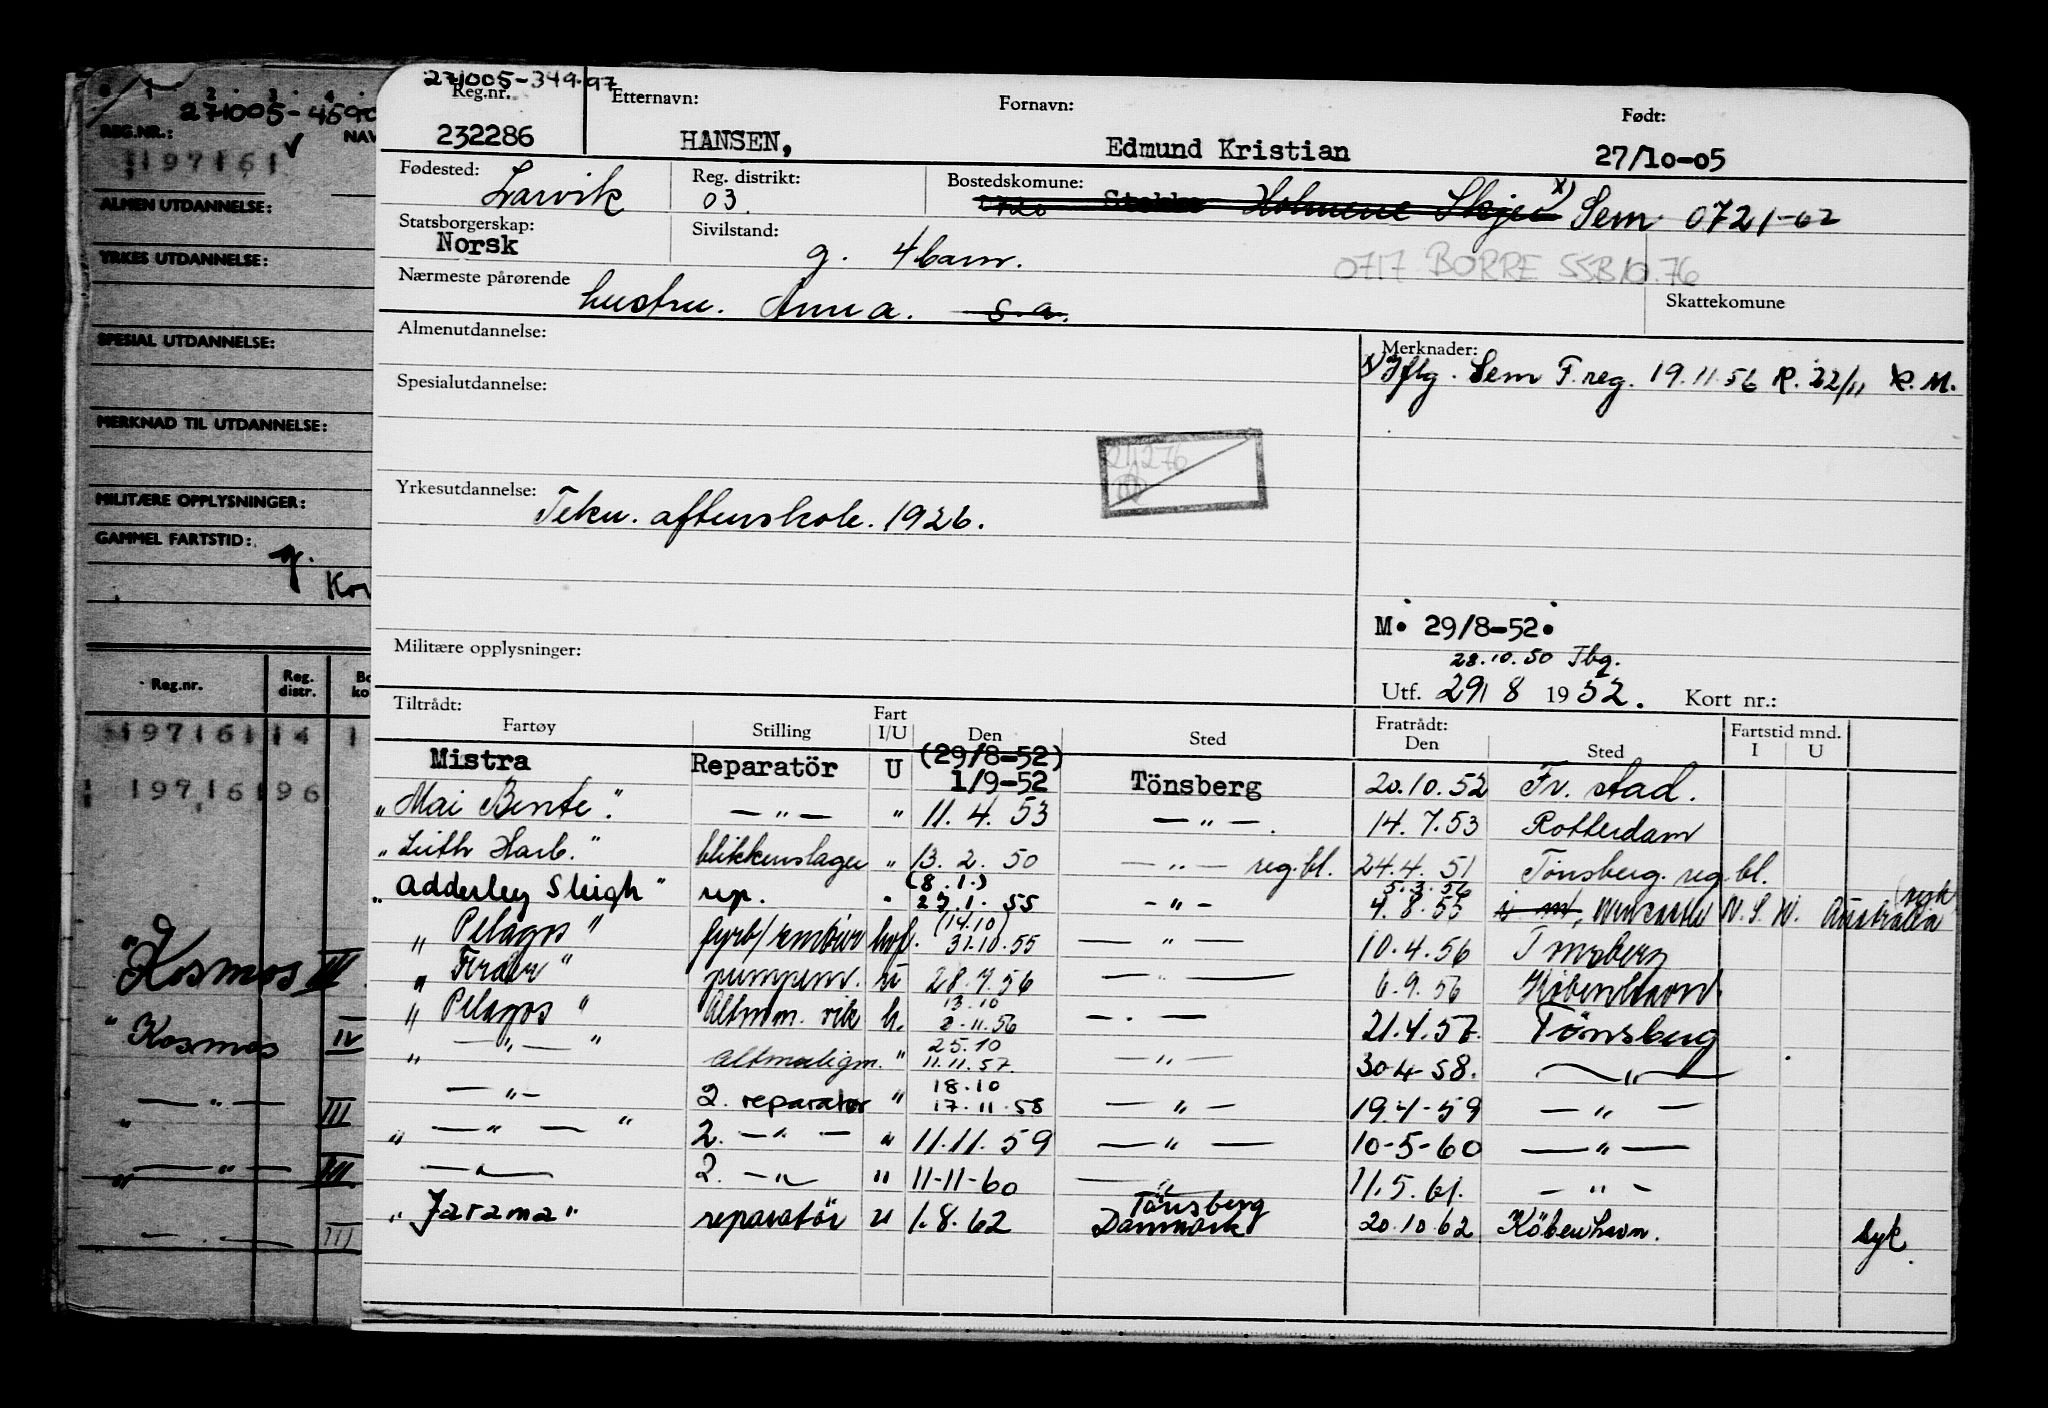 271005-4590
REG.NR.:
NAV
197161
ALMEN UTDANNELSE:
YRKES UTDANNELSE:
SPESIAL UTDANNELSE:
MERKNAD TIL UTDANNELSE:
MILITÆRE OPPLYSNINGER:
GAMMEL FARTSTID:
Reg.nr. Reg. distr.
197161 14
197161 96
"Kosmos III
" Kosmos IV
— " — III
" — " — III
— . — III
271005-349.97
Reg.nr. Etternavn: Fornavn: Født:
232286 HANSEN, Edmund Kristian 27/10-05
Fødested: Larvik Reg. distrikt: 03. Bostedskomune: 1720 Stokke Holmene Skjee x) Sem 0721-62
Statsborgerskap: Norsk Sivilstand: g. 4 barn. 0717 BORRE SSB 10.76
Nærmeste pårørende hustru. Anna. s.a. Skattekomune
Almenutdannelse: Merknader:
x) Iflg. Sem F.reg. 19.11.56 R. 22/11 K.M.
Spesialutdannelse:
Yrkesutdannelse: Tekn. aftenskole. 1926.
M. 29/8-52.
28.10.50 Tbg.
Militære opplysninger: Utf. 29/ 8 1952. Kort nr.:
Tiltrådt: Fratrådt: Fartstid mnd.
Fartøy Stilling Fart I/U Den Sted Den Sted I U
Mistra Reparatör U (29/8-52) 1/9-52 Tönsberg 20.10.52 Fr. stad.
"Mai Bente". — " — " 11. 4. 53 — " —. 14.7.53 Rotterdam
"Leith Harb." blikkenslager " 13. 2. 50 — " — reg.bl. 24.4.51 Tönsberg. reg.bl.
"Adderley Sleigh" rep. " (8.1.) 27.1.55 — " — 5.3.56 4.8.55 N.S.W. Australia (syk
" Pelagos " hvf. (14.10) 31.10.55 — " — 10.4.56 Tönsberg
" Færder " pumpem. u 28.7.56 — " — 6.9.56 Köbenhavn
" Pelagos " h. 13.10 2.11.56 — . — 21.4.57. Tönsberg
" — " — " altmuligm. " 25.10 11.11.57. — " — 30-4-58. — " —
— " — 2. reparatør " 18.10 17.11.58 — " — 19.4-59 — " —
" — " — " 2. — " — " 11.11.59 — " — 10-5-60 — " —
— " — 2. — " — " 11-11-60 — " — 11.5.61. — " —
"Jarama" reparatör u 1.8.62 Tönsberg Danmark 20.10.62 Köbenhavn. syk.